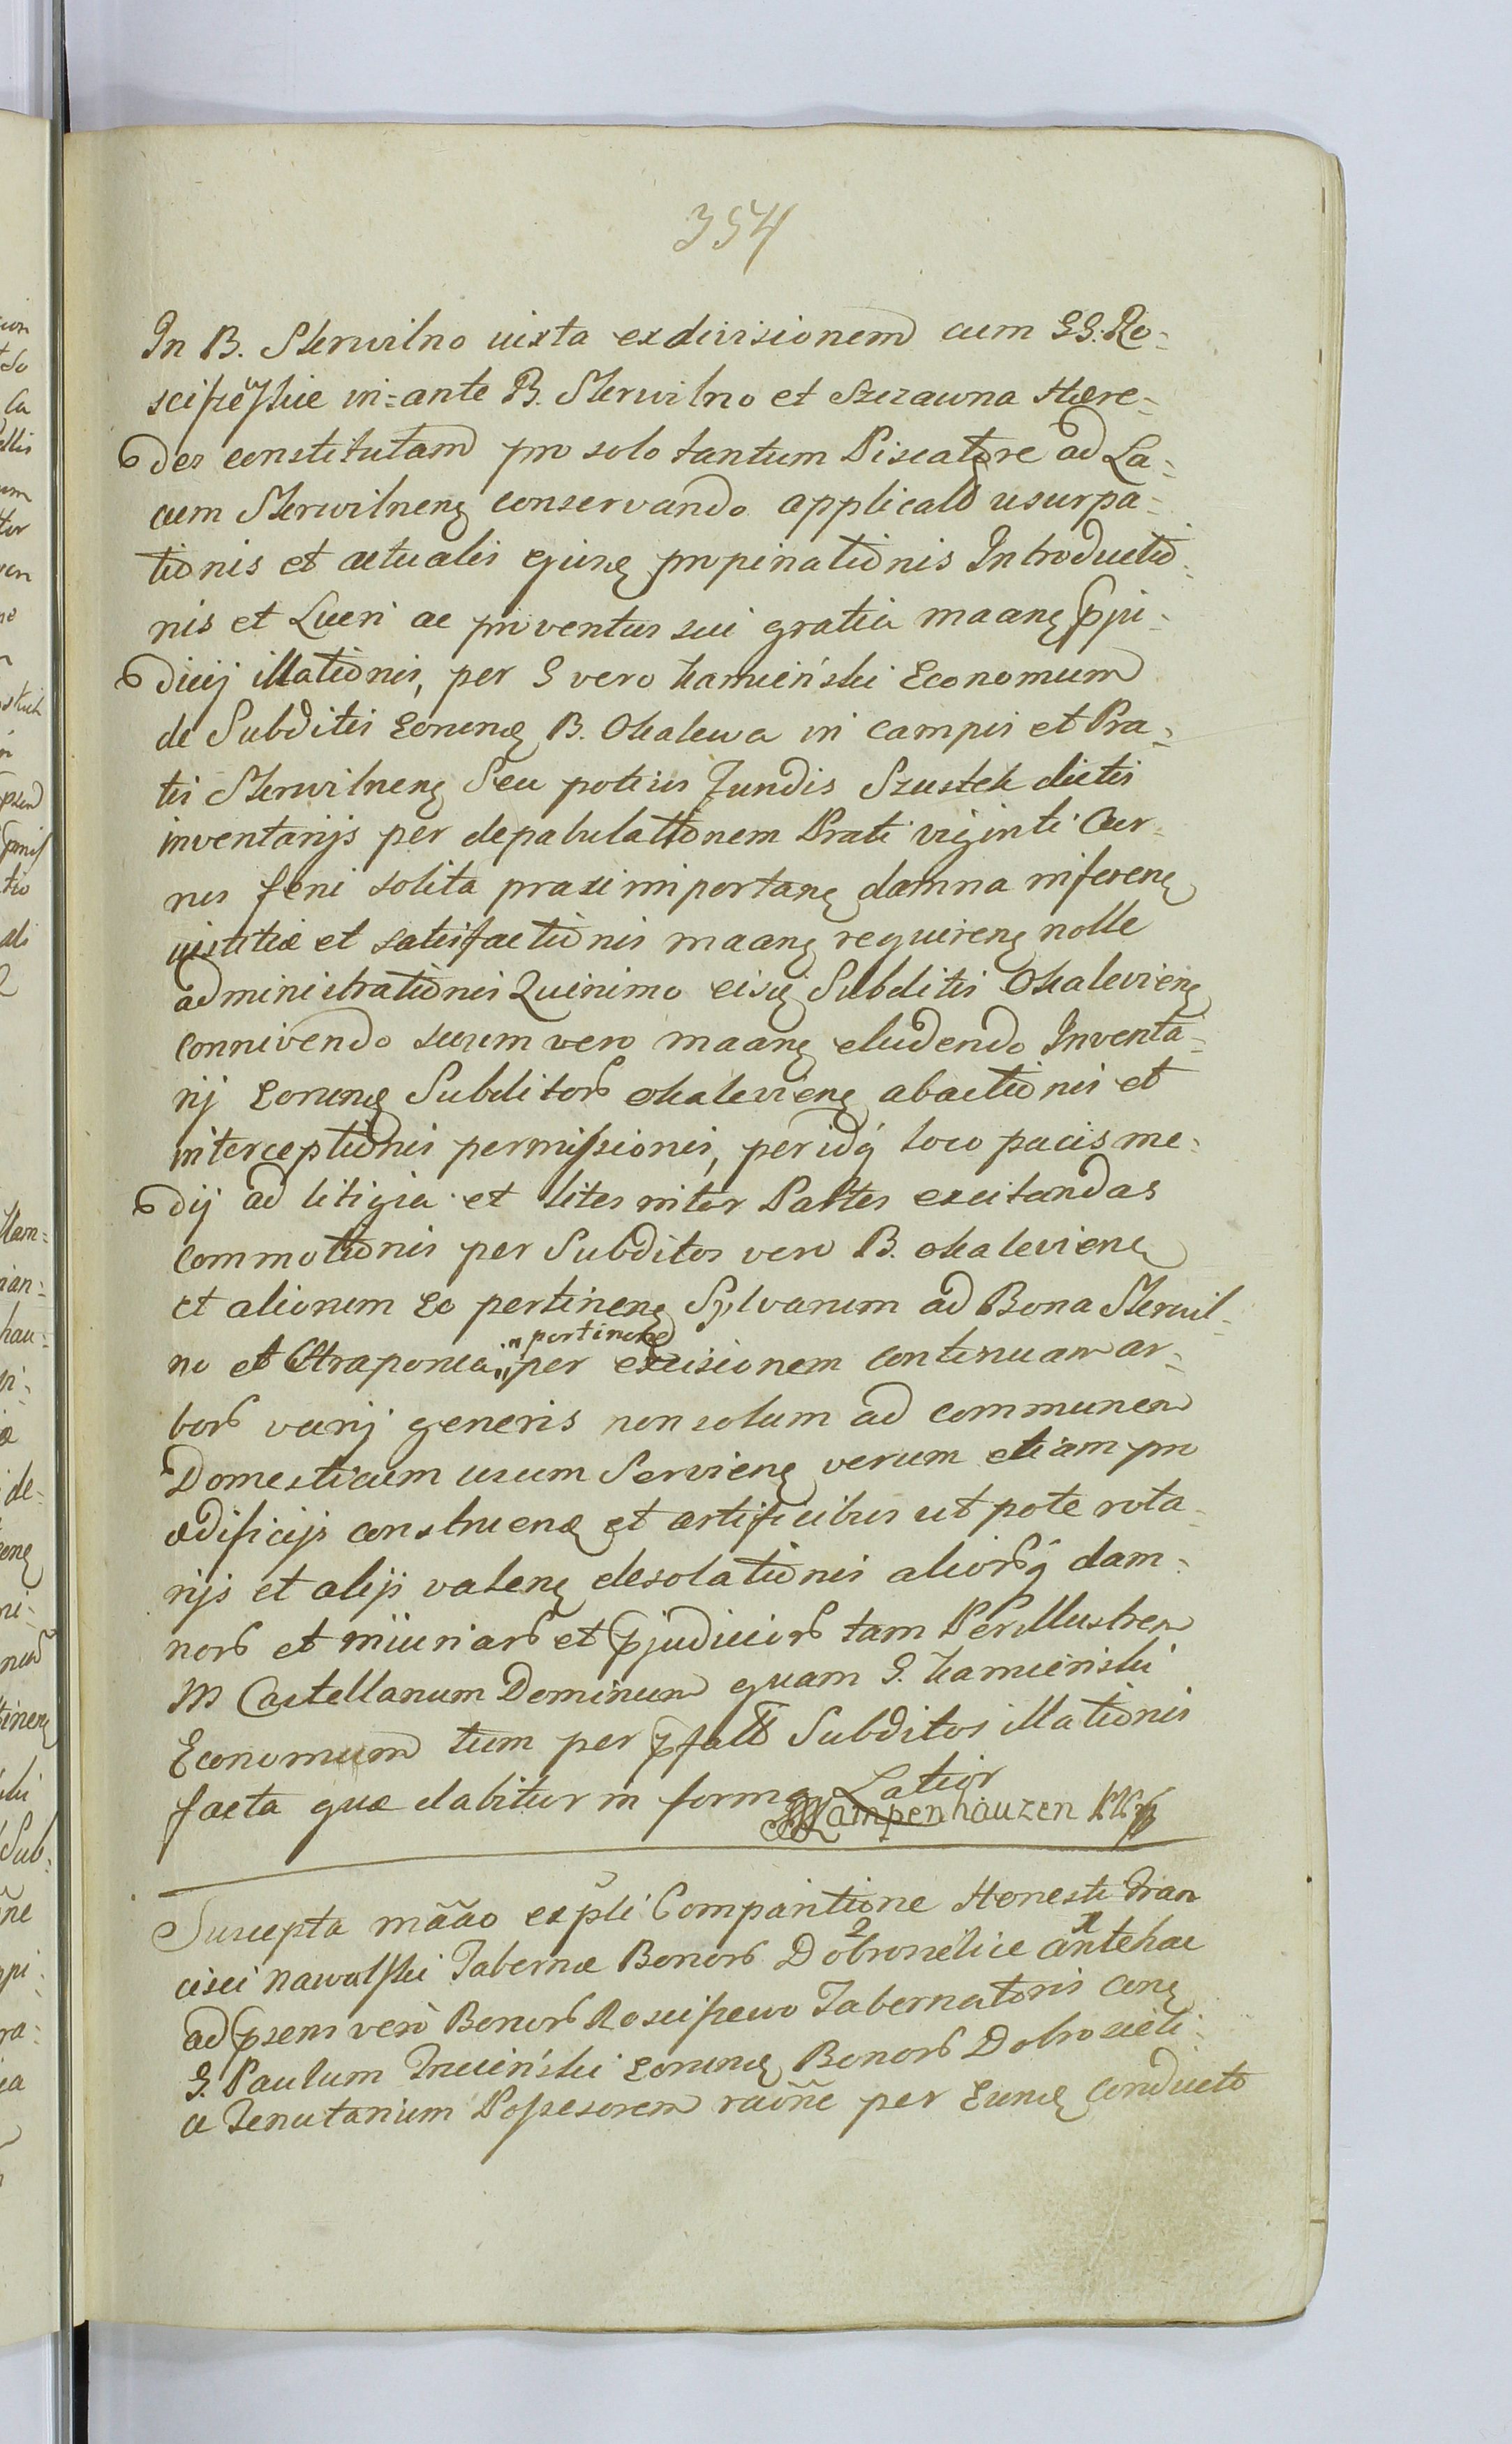 354
In B. Skrwilno iuxta exdivisionem cum GG. Ro-
sciszewskie in-ante B. Skrwilno et Szczawna Hære-
des constitutam pro solo tantum Piscatore ad La-
cum Skrwilnenę conservando applicatæ usurpa-
tionis et actualis ejusę propinationis Introductio-
nis et Lucri ac proventus sui gratia maanę pju-
dicij illationis, per G vero Kamieński Economum
de Subditis Eorundę B. Okalewa in campis et Pra-
tis Skrwilnenę Seu potius Fundis Szustek dictis
inventarijs per depabulationem Prati viginti Cur-
rus feni solita praxi importanę damna inferenę
iustitiæ et satisfactionis maanę requirenę nolle
administrationis Quinimo eisdę Subditis Okalevienę
connivendo suum vero maanę eludendo Inventa-
rij Eorundę Subditorꝝ okalevienę abactionis et
interceptionis permissionis, per idq́ loco pacis me-
dij ad litigia et lites inter Partes excitandas
commotionis per Subditos vero B. okalevienę
et aliorum Eo pertinenę Sylvarum ad Bona Skrwil-
no et Straponica pertinenę per excisionem continuam ar-
borꝝ varij generis non solum ad communem
Domesticum usum Servienę verum etiam pro
ædificijs construenę et artificibus ut pote rota-
rijs et alijs valenę desolationis aliorꝝq́ dam-
norꝝ et iniuriarꝝ et pjudiciorꝝ tam Perillustrem
M Castellanum Dominum quam G. Kamieński
Economum tum per pfatꝝ Subditos illationis
facta quæ dabitur in forma Latior
Kampenhauzen
Suscepta mããо exp̃li Comparitione Honesti Fran
cisci Nawalski Tabernæ Bonorꝝ Dobronielice antehac
ad psens verò Bonorꝝ Rosciszewo Tabernatoris conę
G. Paulum Trucieński Eorundę Bonorꝝ Dobrosieli-
ce Tenutarium Possesorem raõne per Eundę conducto